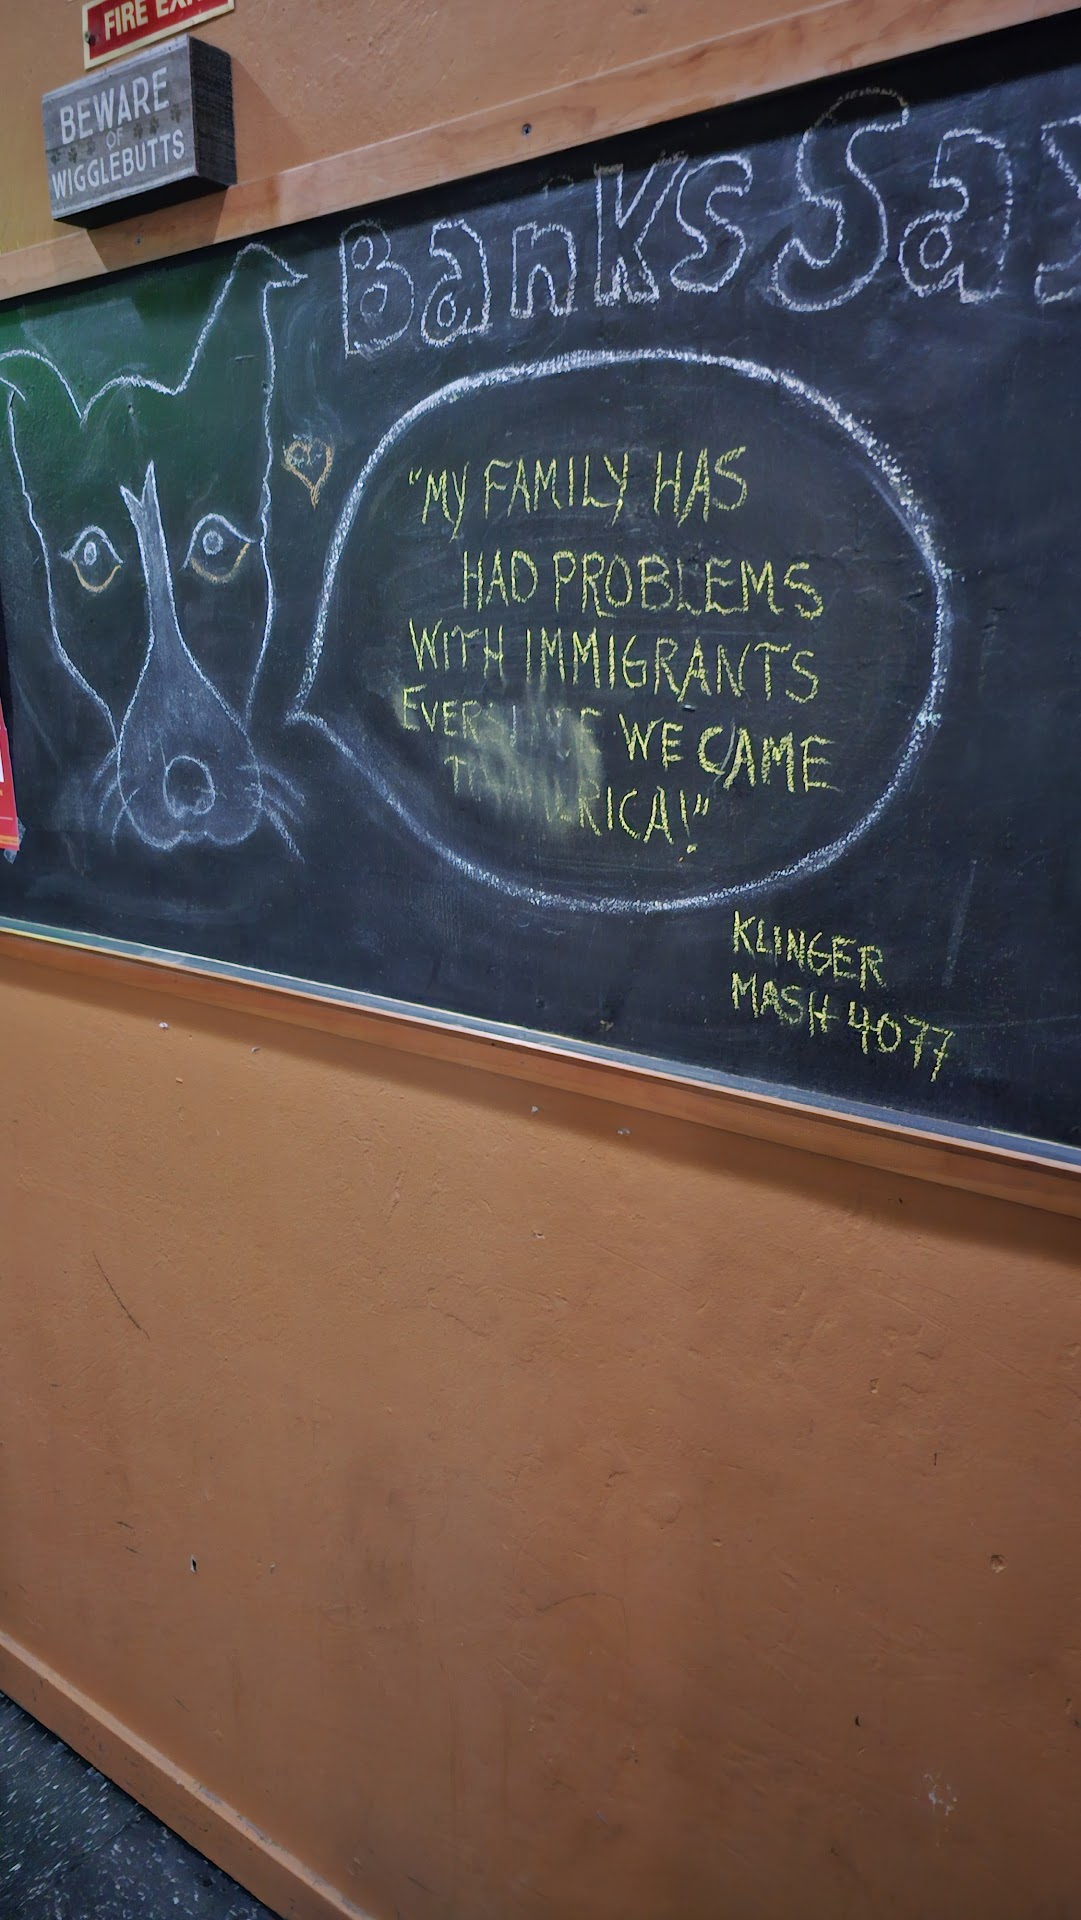 FIRE
BEWARE
OF
WIGGLEBUTTS
Banks Say
"MY FAMILY HAS
HAD PROBLEMS
WITH IMMIGRANTS
EVER SINCE WE CAME
TO AMERICA!"
KLINGER
MASH 4077